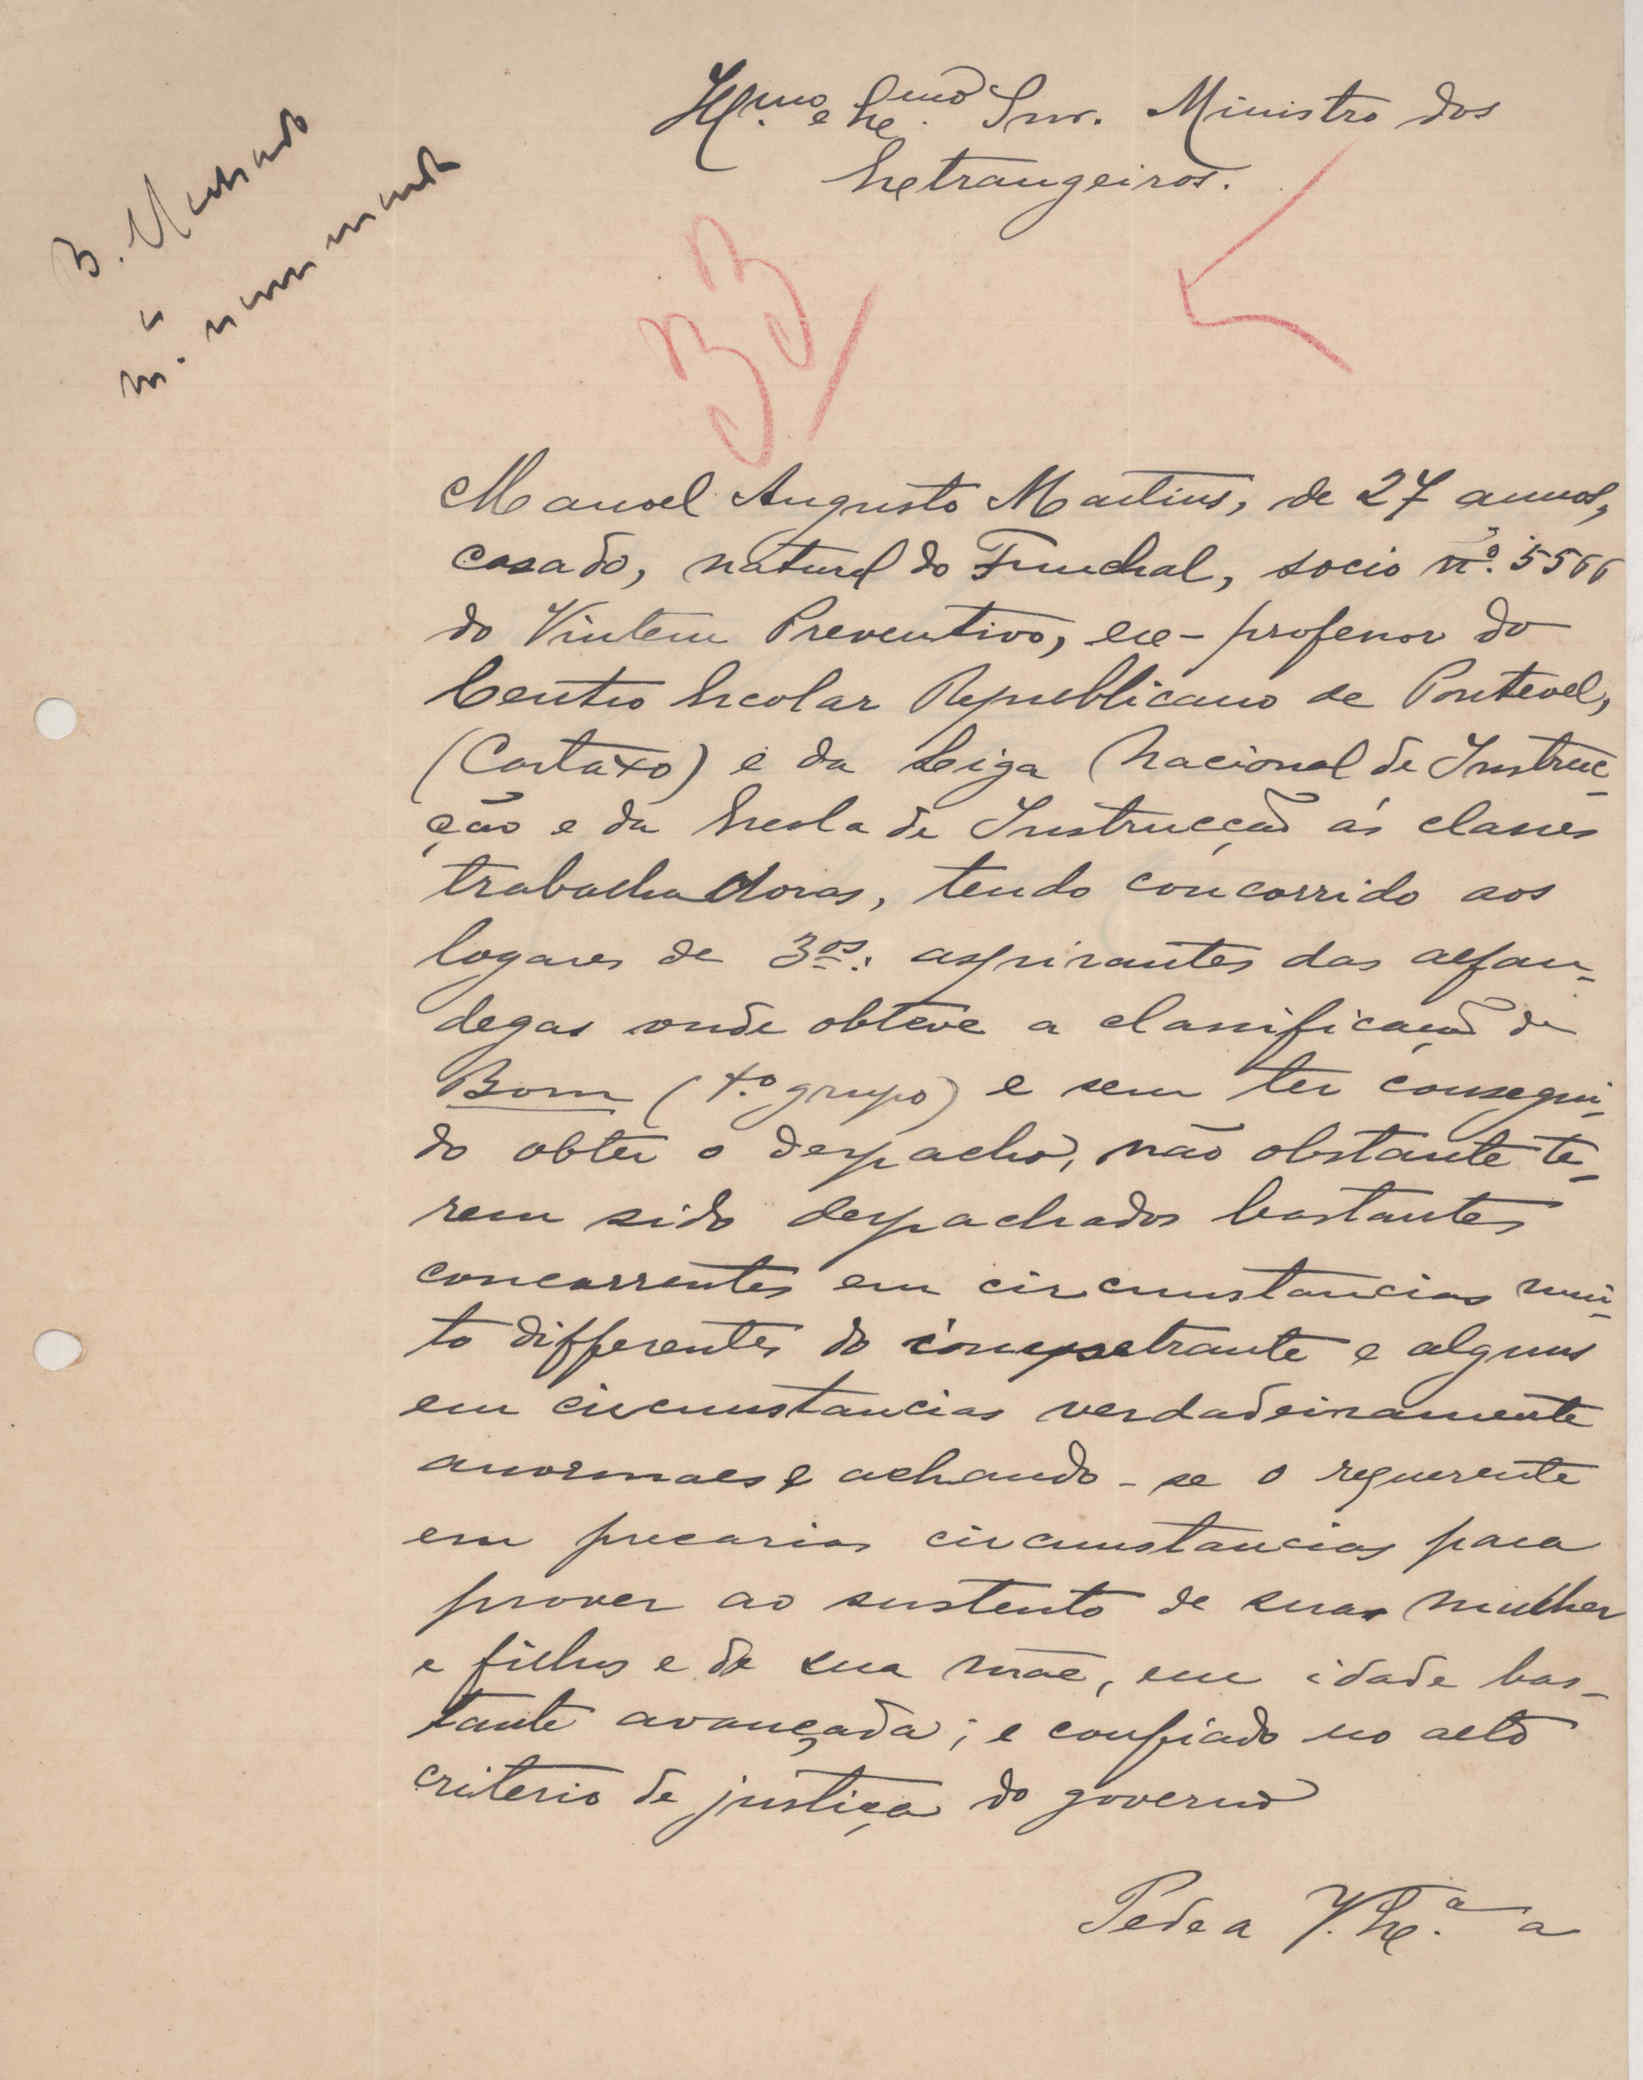 B. Machado
Ill.mo e Ex.mo Snr. Ministro dos
Extrangeiros.
33
Manoel Augusto Martins, de 27 annos,
casado, natural do Funchal, socio nº. 5566
do Vintem Preventivo, ex-professor do
Centro Escolar Republicano de Pontevel,
(Cartaxo) e da Liga Nacional de Instruc-
ção e da Escola de Instrucção ás classes
trabalhadoras, tendo concorrido aos
logares de 3os. aspirantes das alfan-
degas onde obteve a classificação de
Bom (4.º grupo) e sem ter consegui-
do obter o despacho, não obstante te-
rem sido despachados bastantes
concorrentes em circumstancias mui-
to differentes do e alguns
em circumstancias verdadeiramente
anormaes e achando-se o requerente
em precarias circumstancias para
prover ao sustento de sua mulher
e filhos e de sua mãe, em idade bas-
tante avançada; e confiado no alto
criterio de justiça do governo
Pede a V. Ex.ª a